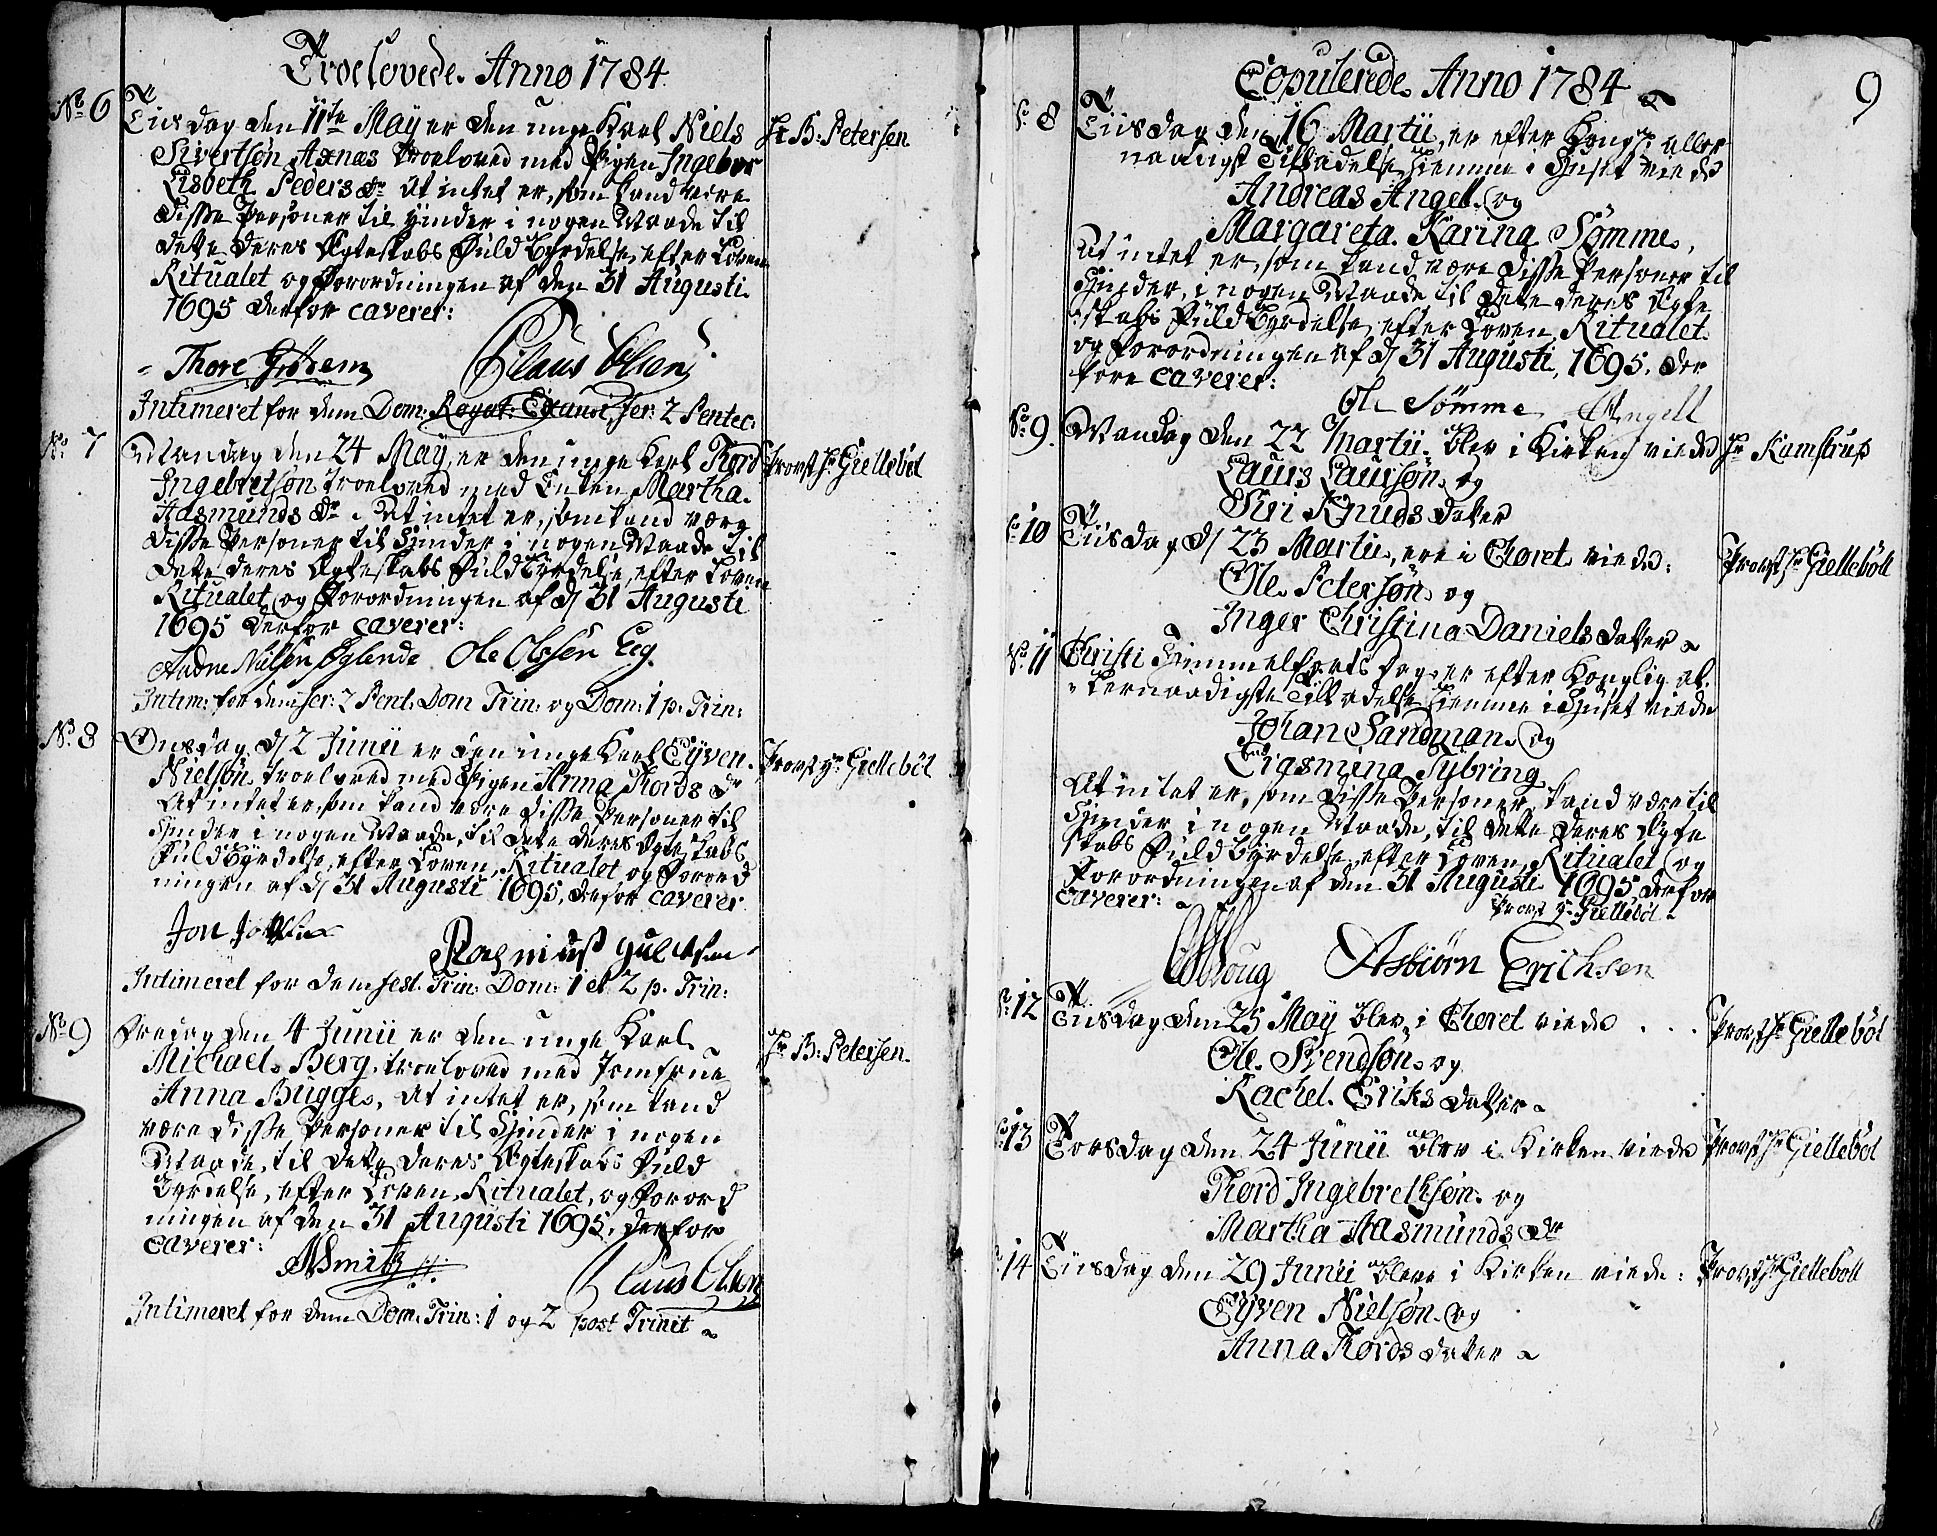 Troelovede. Anno 1784.
No 6 Tiisdag den 11te May er den unge Karl Niels Hr B: Petersen
Sivertsøn Axnas troeloved med Pigen Ingebor
Lisbeth Peders Dr At intet er, som kand være
disse Personer til Hinder i nogen Maade til
dette deres Ægteskabs Fuldbyrdelse, efter Loven
Ritualet og Forordningen af den 31 Augusti
1695 derfor caverer:
Claus Olsen
Intimeret for dem Dom: Rogat: Exaudi, fer: 2 Pentec:
No 7 Mandag den 24 May, er den unge Karl Thord Provst Hr Giellebøl
Ingebretsøn troeloved med Enken Martha
Aasmunds Dr. At intet er, som kand være
disse Personer til Hinder i nogen Maade til
dette deres Ægteskabs Fuldbyrdelse, efter Loven
Ritualet og Forordningen af d/ 31 Augusti
1695 derfor caverer:
Nilsen Øglende Ole Olssøn Eeg
Intim: for dem fer: 2 Pent. Dom Trin: og Dom: 1 p. Trin:
No 8 Onsdag d/ 2 Junii er den unge Karl Eyven Provst Hr Giellebøl
Nielsøn troeloved med Pigen Anna Thords Dr
At intet er, som kand være disse Personer til
Hinder i nogen Maade, til dette deres Ægteskabs
Fuldbyrdelse, efter Loven, Ritualet og Forord
ningen af d/ 31 Augusti 1695, derfor caverer
Jon
Intimeret for dem fest. Trin: Dom: 1 et 2 p. Trin:
No 9 Fredag den 4 Junii er den unge Karl Hr B: Petersen.
Michael Berg, troeloved med Jomfrue
Anna Bugge, At intet er, som kand
være disse Personer til Hinder i nogen
Maade, til dette deres Ægteskabs Fuld
byrdelse, efter Loven, Ritualet, og Forord
ningen af den 31 Augusti 1695, derfor
caverer:
Smith Claus Olsen
Intimeret for dem Dom. Trin: 1 og 2 post Trinit
Copulerede Anno 1784 9
No 8 Tiisdag den 16 Martii, er efter Kongl: aller
naadigst Tilladelse hiemme i Huset viede
Andreas Angell og
Margareta Karina Sømme,
At intet er, som kand være disse Personer til
Hinder, i nogen Maade til dette deres Ægte
skabs Fuldbyrdelse, efter Loven, Ritualet
og Forordningen af d/ 31 Augusti, 1695, der
fore caverer:
Ole Sømme Angell
No 9. Mandag den 22 Martii blev i Kirken viede Hr Kamstrup
Laurs Laursøn og
Siri Knuds Datter
No 10 Tiisdag d/ 23 Martii, ere i Choret viede: Provst Hr Giellebøll
Ole Petersøn og
Inger Christina Daniels Datter
No 11 Christi Himmelfarts Dag er efter Konglig al
lernaadigste Tilladelse hiemme i Huset viede
Johan Sandman og
Sigsmina Sybring
At intet er, som disse Personer kand være til
Hinder i nogen Maade, til dette deres Ægte
skabs Fuldbyrdelse, efter Loven, Ritualet og
Forordningen af den 31 Augusti 1695, derfor
caverer: Provst Hr Giellebøl
Asbiørn Erichsen
No 12 Tiisdag den 25 May blev i Choret viede . . . Provst Hr Giellebøl
Ole Svendsøn og
Rachel Eriks Datter
No 13 Torsdag den 24 Junii blev i Kirken viede Provst Hr Giellebøl
Thord Ingebrethsøn og
Martha Aasmunds Dr
No 14 Tiisdag den 29 Junii bleve i Kirken viede: Provst Hr Giellebøll
Eyven Nielsøn og
Anna Thords Datter